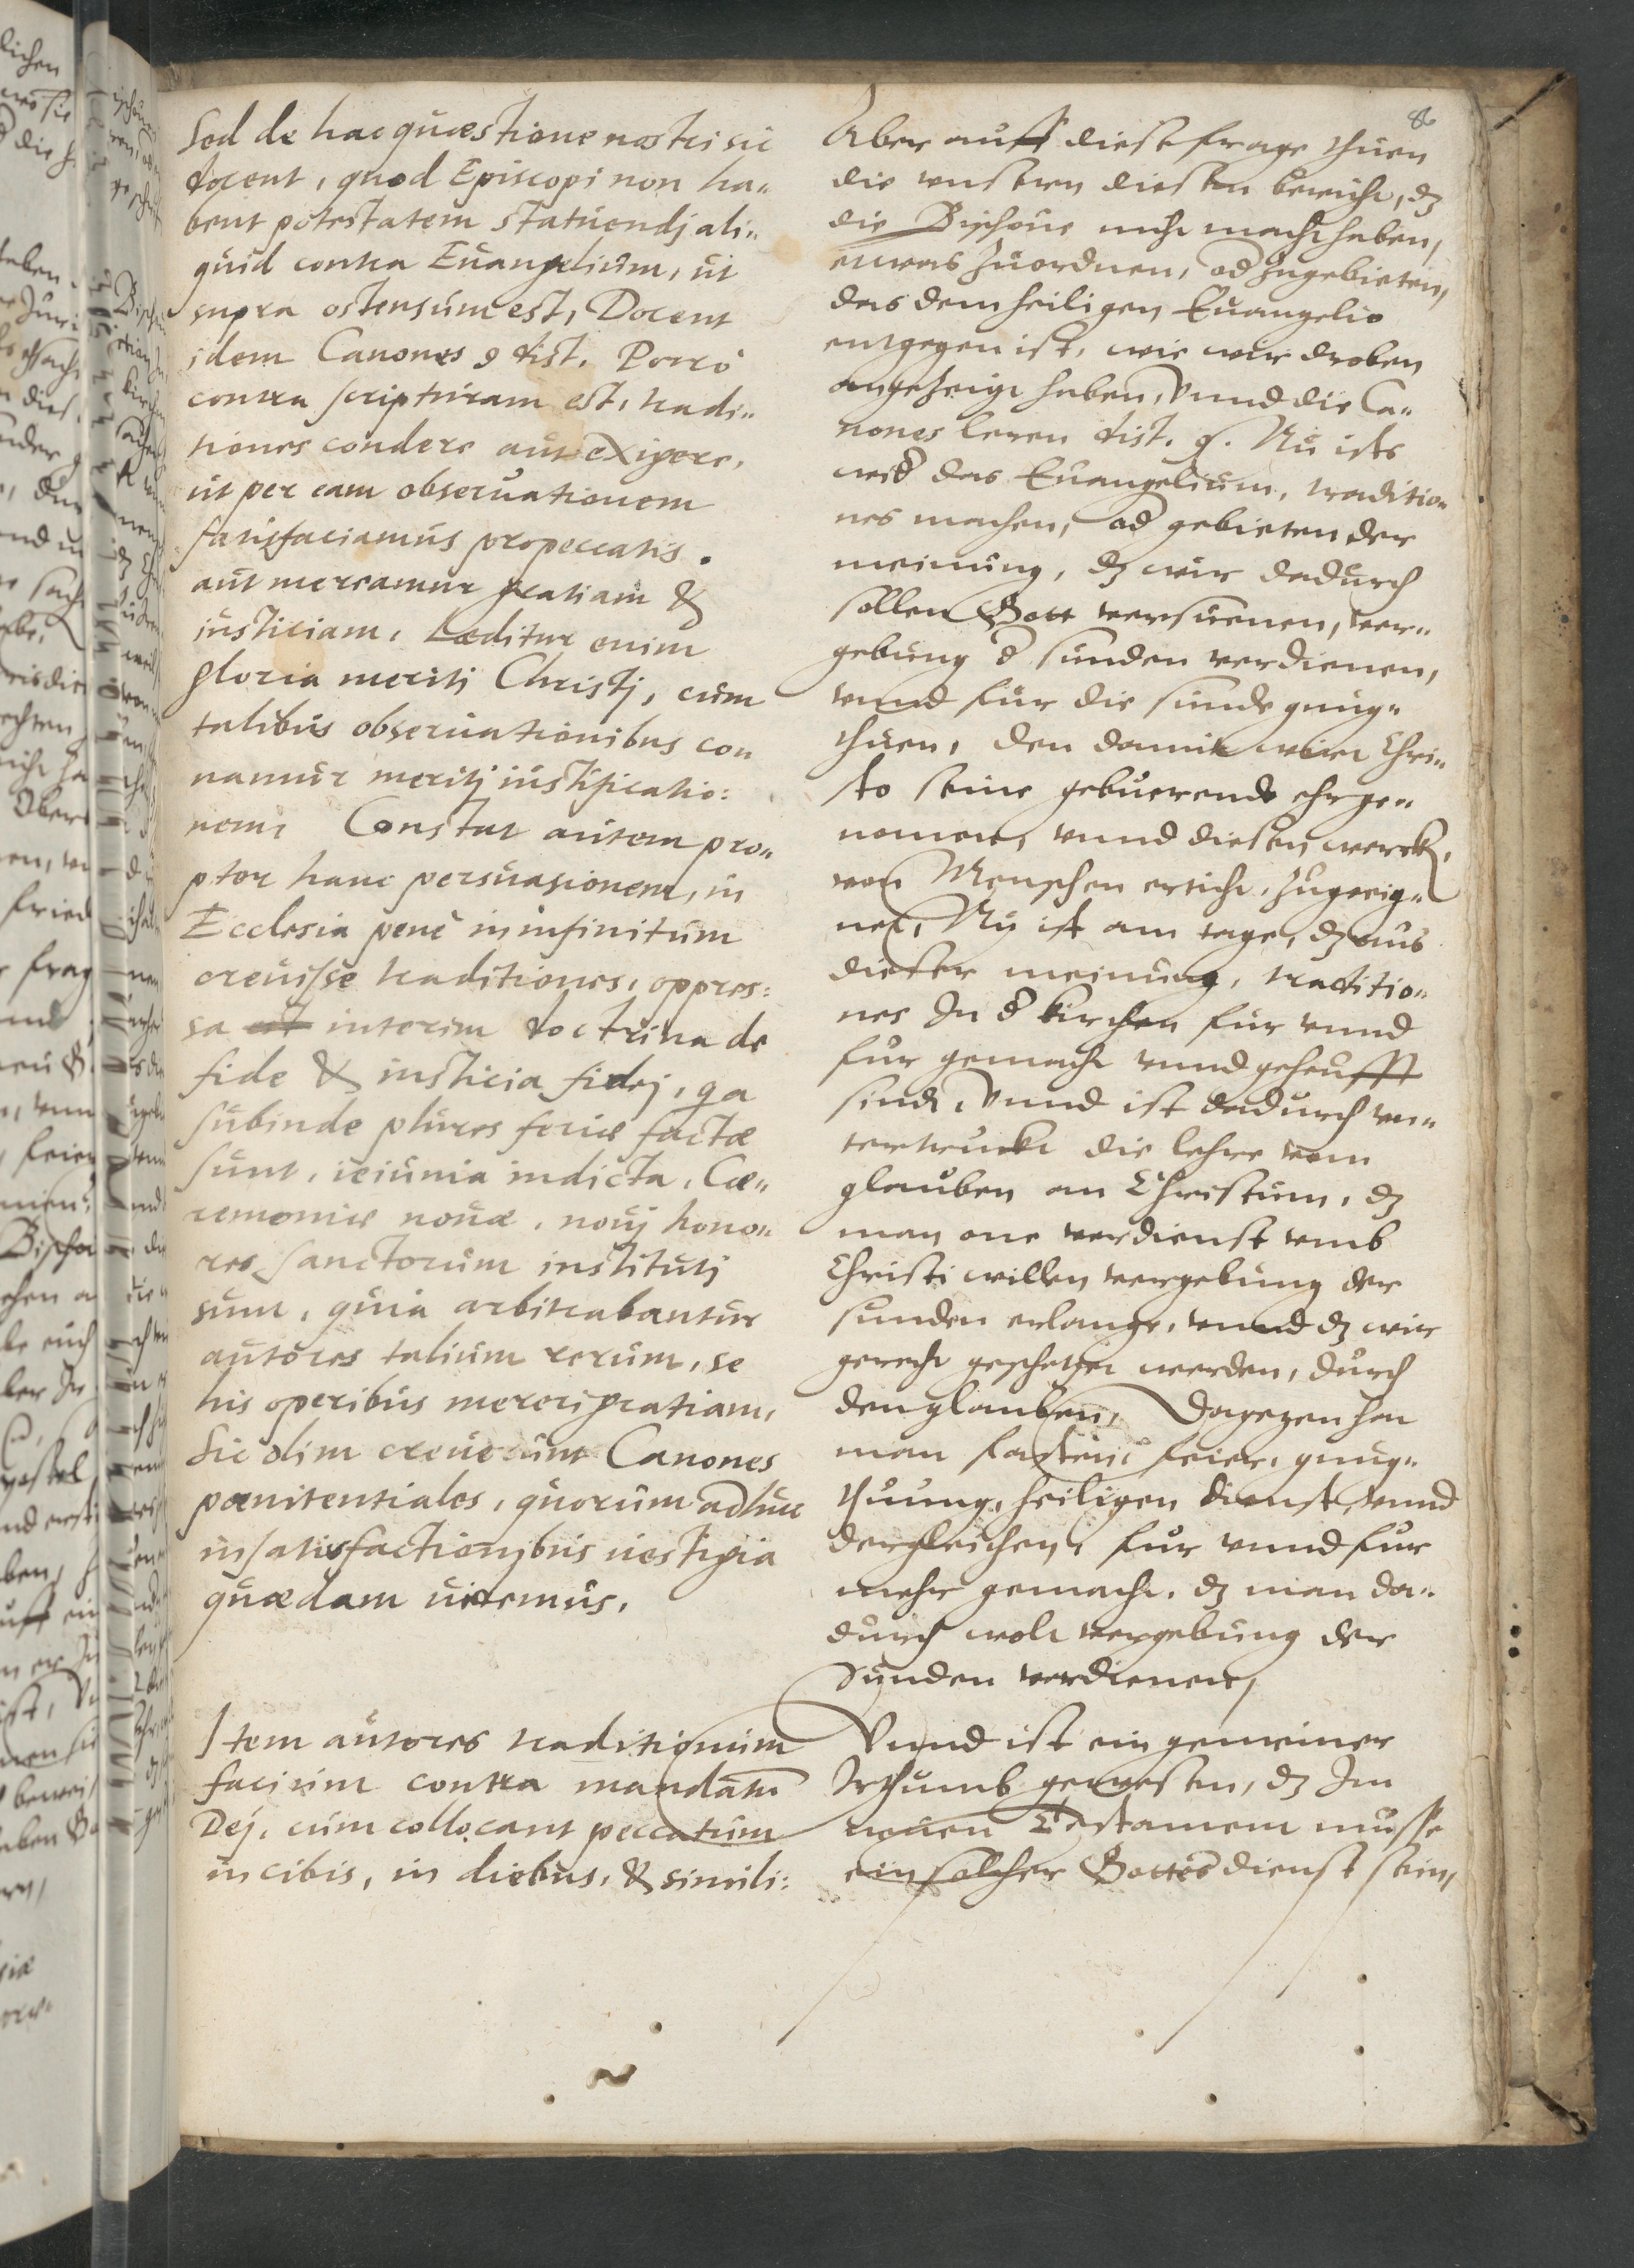 86
Sed de hac quæstione nostri sic
docent, quod Episcopi non ha„
bent potestatem statuendj ali„
quid contra Euangelium, ut
supra ostensum est, Docent
idem Canones 9 dist. Porrò
contra scripturam est, tradi„
tiones condere aut exigere,
ut per eam obseruationem
satisfaciamus pro peccatis.
aut mereamur gratiam &
iusticiam. Læditur enim
gloria meritj Christj, cum
talibus obseruationibus co„
namur meritj iustificatio:
nem, Constat autem pro„
pter hanc persuasionem, in
Ecclesia penè in infinitum
creuisse traditiones, oppres:
sa est interim doctrina de
fide & iusticia fidej, qa
subinde plures feriæ factæ
sunt, ieiunia indicta, Cæ„
remoniæ nouæ, nouj hono„
res Sanctorum institutj
sunt, quia arbitrabantur
autores talium rerum, se
his operibus mererj gratiam,
Sic olim creuerunt Canones
pœnitentiales, quorum adhuc
in satisfactionibus uestigia
quædam uidemus.
Item autores traditionum
faciunt contra mandatū
Dej, cum collocant peccatum
in cibis, in diebus, & simili:
Aber auff diese frage thuen
die vnsern diesen bericht, dz
die Bischoue nicht macht haben,
etwas zuordnen, od zugebieten,
das dem heiligen Euangelio
entgegen ist, wie wir droben
angezeigt haben, Vnnd die Ca„
nones leren dist. 9. Nu ists
wid das Euangelium, traditio„
nes machen, od gebieten der
meinung, dz wir dadurch
sollen Gott versuenen, ver„
gebung d sunden verdienen,
vnnd für die sunde gnug„
thuen, den damit wirt Chri„
sto seine gebuerende ehr ge„
nomen, vnnd diesen werck,
von Menschen erticht, zugeeig„
net, Nu ist am tage, dz aus
dieser meinung, traditio„
nes In d kirchen fur vnnd
fur gemacht vnnd geheufft
sindt, Vnnd ist dadurch vn„
tertruckt die lehre vom
glauben an Christum, dz
man one verdienst vmb
Christi willen vergebung der
sunden erlange, vnnd dz wir
gerecht geschetzet werden, durch
den glauben, Dagegen hat
man fasten, feier, gnug„
thuung, heiligen dienst, vnnd
dergleichen, fur vnnd fur
mehr gemacht, dz man da„
durch wolt vergebung der
Sunden verdienen,
Vnnd ist ein gemeiner
Irthumb gewesen, dz Im
neuen Testament musse
ein solcher Gottesdienst sein,